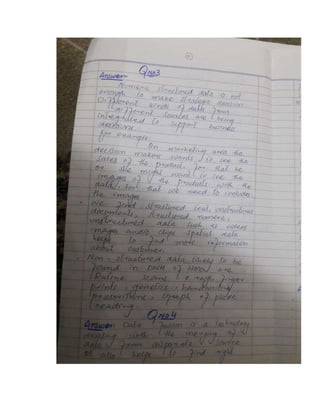 Q No3
Answer
Numeric structured data is not
enough to make strategic decision
Different kinds of data from
different sources are being
integrated to support business
decisions
for example:
On marketing area the
decision makers wants to see the
sales of the product for that he
or she might want to see the
images of the products with the
data, for that we need to include
the images
we find structured and unstructured
documents, structured numeric,
unstructured data such as videos
images audio clips spatial data
helps to find more information
about customer.
Non-structured data likely to be
found in DWH of are
Retina scans, finger
prints, genetics, handwriting
graph of pulse
reading.
Q No4
Answer Data fusion is a technology
dealing with the merging of
data from disparate source
also helps to find